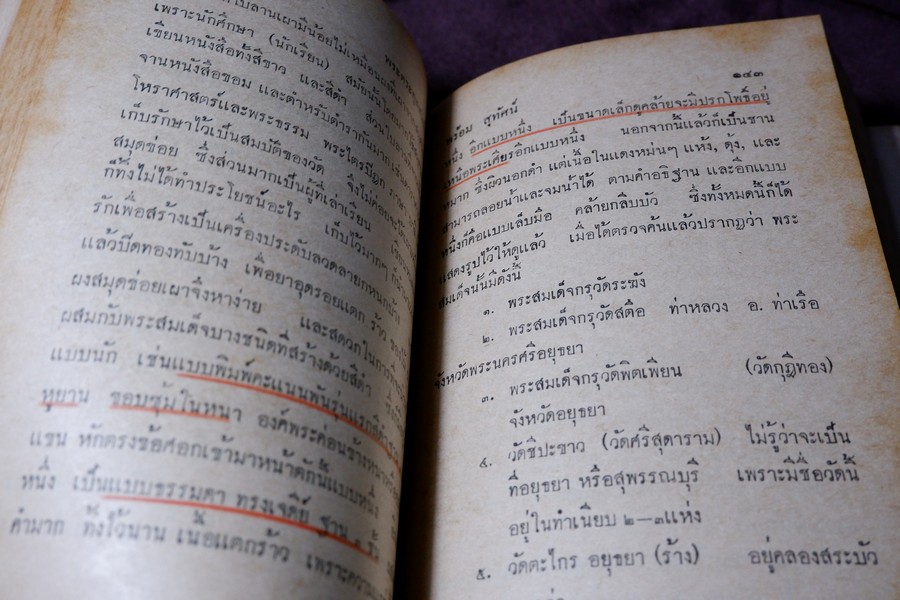 ใบลานเผามีน้อยไม่เหมือนผง
เพราะนักศึกษา (นักเรียน) สมัยนั้นได้
เขียนหนังสือทั้งสีขาว และสีดำ ส่วน
จานหนังสือขอม และตำหรับตำรากันมาก
โหราศาสตร์และพระธรรม พระไตรปิฎก
เก็บรักษาไว้เป็นสมบัติของวัด จึงไม่ค่อยจะ
สมุดข่อย ซึ่งส่วนมากเป็นผู้ที่เล่าเรียน
ก็ทิ้งไม่ได้ทำประโยชน์อะไร เก็บไว้มากๆ
รักเพื่อสร้างเป็นเครื่องประดับลวดลายกหนก
แล้วปิดทองทับบ้าง เพื่อยาอุดรอยแตก ร้าว
ผงสมุดข่อยเผาจึงหาง่าย และสดวกในการ
ผสมกับพระสมเด็จบางชนิดที่สร้างด้วยสีดำ
แบบนัก เช่นแบบพิมพ์คะแนนพันรุ่นแรกสีดำ
หูยาน ขอบซุ้มโนหนา องค์พระค่อนข้าง
แขน หักตรงข้อศอกเข้ามาหน้าตักก็แบบหนึ่ง
หนึ่ง เป็นแบบธรรมดา ทรงเจดีย์ ฐาน
ดำมาก ทั้งไว้นาน เนื้อแตกร้าว เพราะ
๑๔๓
พร้อม สุทัศน์
หนึ่ง อีกแบบหนึ่ง เป็นขนาดเล็กดูคล้ายจะมีปรกโพธิ์อยู่
เหนือพระเศียรอีกแบบหนึ่ง นอกจากนี้แล้วก็เป็นชาน
หมาก ซึ่งผิวนอกดำ แต่เนื้อในแดงหม่นๆ แห้ง, ดุ้ง, และ
สามารถลอยน้ำและจมน้ำได้ ตามคำอธิฐาน และอีกแบบ
หนึ่งก็คือแบบเล็บมือ คล้ายกลีบบัว ซึ่งทั้งหมดนี้ก็ได้
แสดงรูปไว้ให้ดูแล้ว เมื่อได้ตรวจค้นแล้วปรากฏว่า พระ
สมเด็จนั้นมีดังนี้
๑. พระสมเด็จกรุวัดระฆัง
๒. พระสมเด็จกรุวัดสตือ ท่าหลวง อ. ท่าเรือ
จังหวัดพระนครศรีอยุธยา
๓. พระสมเด็จกรุวัดพิตเพียน (วัดกุฎีทอง)
จังหวัดอยุธยา
๔. วัดชีปะขาว (วัดศรีสุดาราม) ไม่รู้ว่าจะเป็น
ที่อยุธยา หรือสุพรรณบุรี เพราะมีชื่อวัดนี้
อยู่ในทำเนียบ ๒—๓แห่ง
๕. วัดตะไกร อยุธยา (ร้าง) อยู่คลองสระบัว